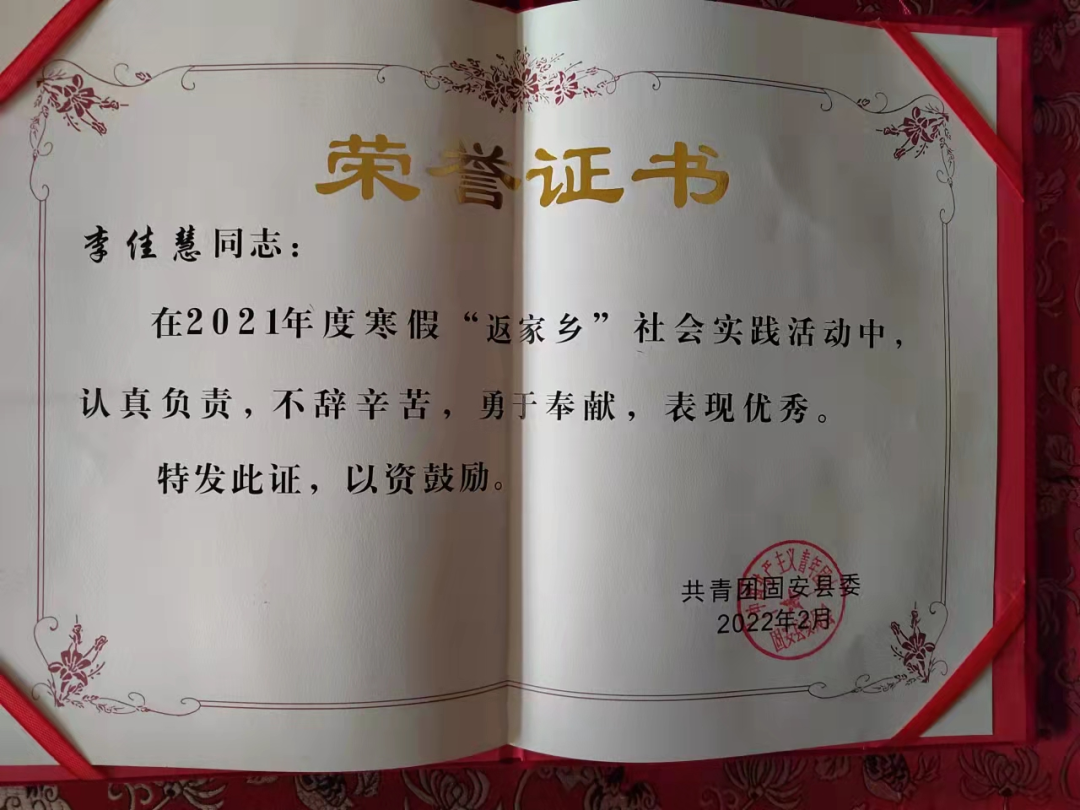 荣誉证书
李佳慧同志：
在2021年度寒假“返家乡”社会实践活动中，
认真负责，不辞辛苦，勇于奉献，表现优秀。
特发此证，以资鼓励。
共青团固安县委
2022年2月